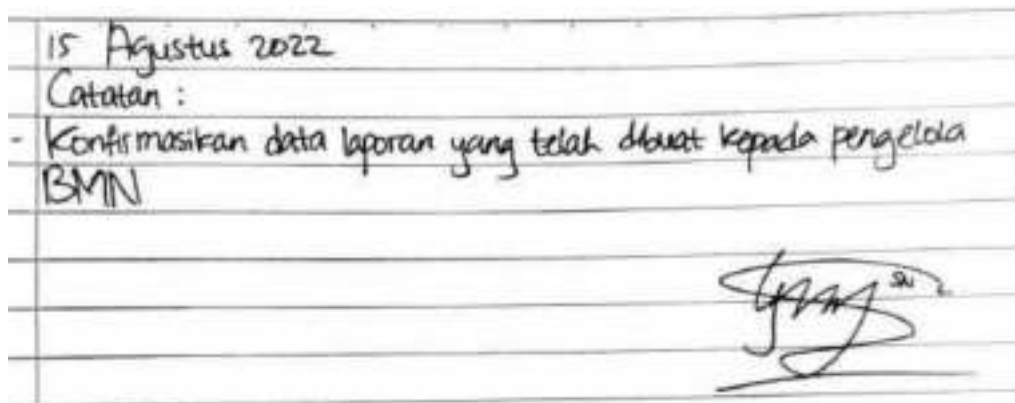 15 Agustus 2022
Catatan :
- Konfirmasikan data laporan yang telah dibuat kepada pengelola
BMN